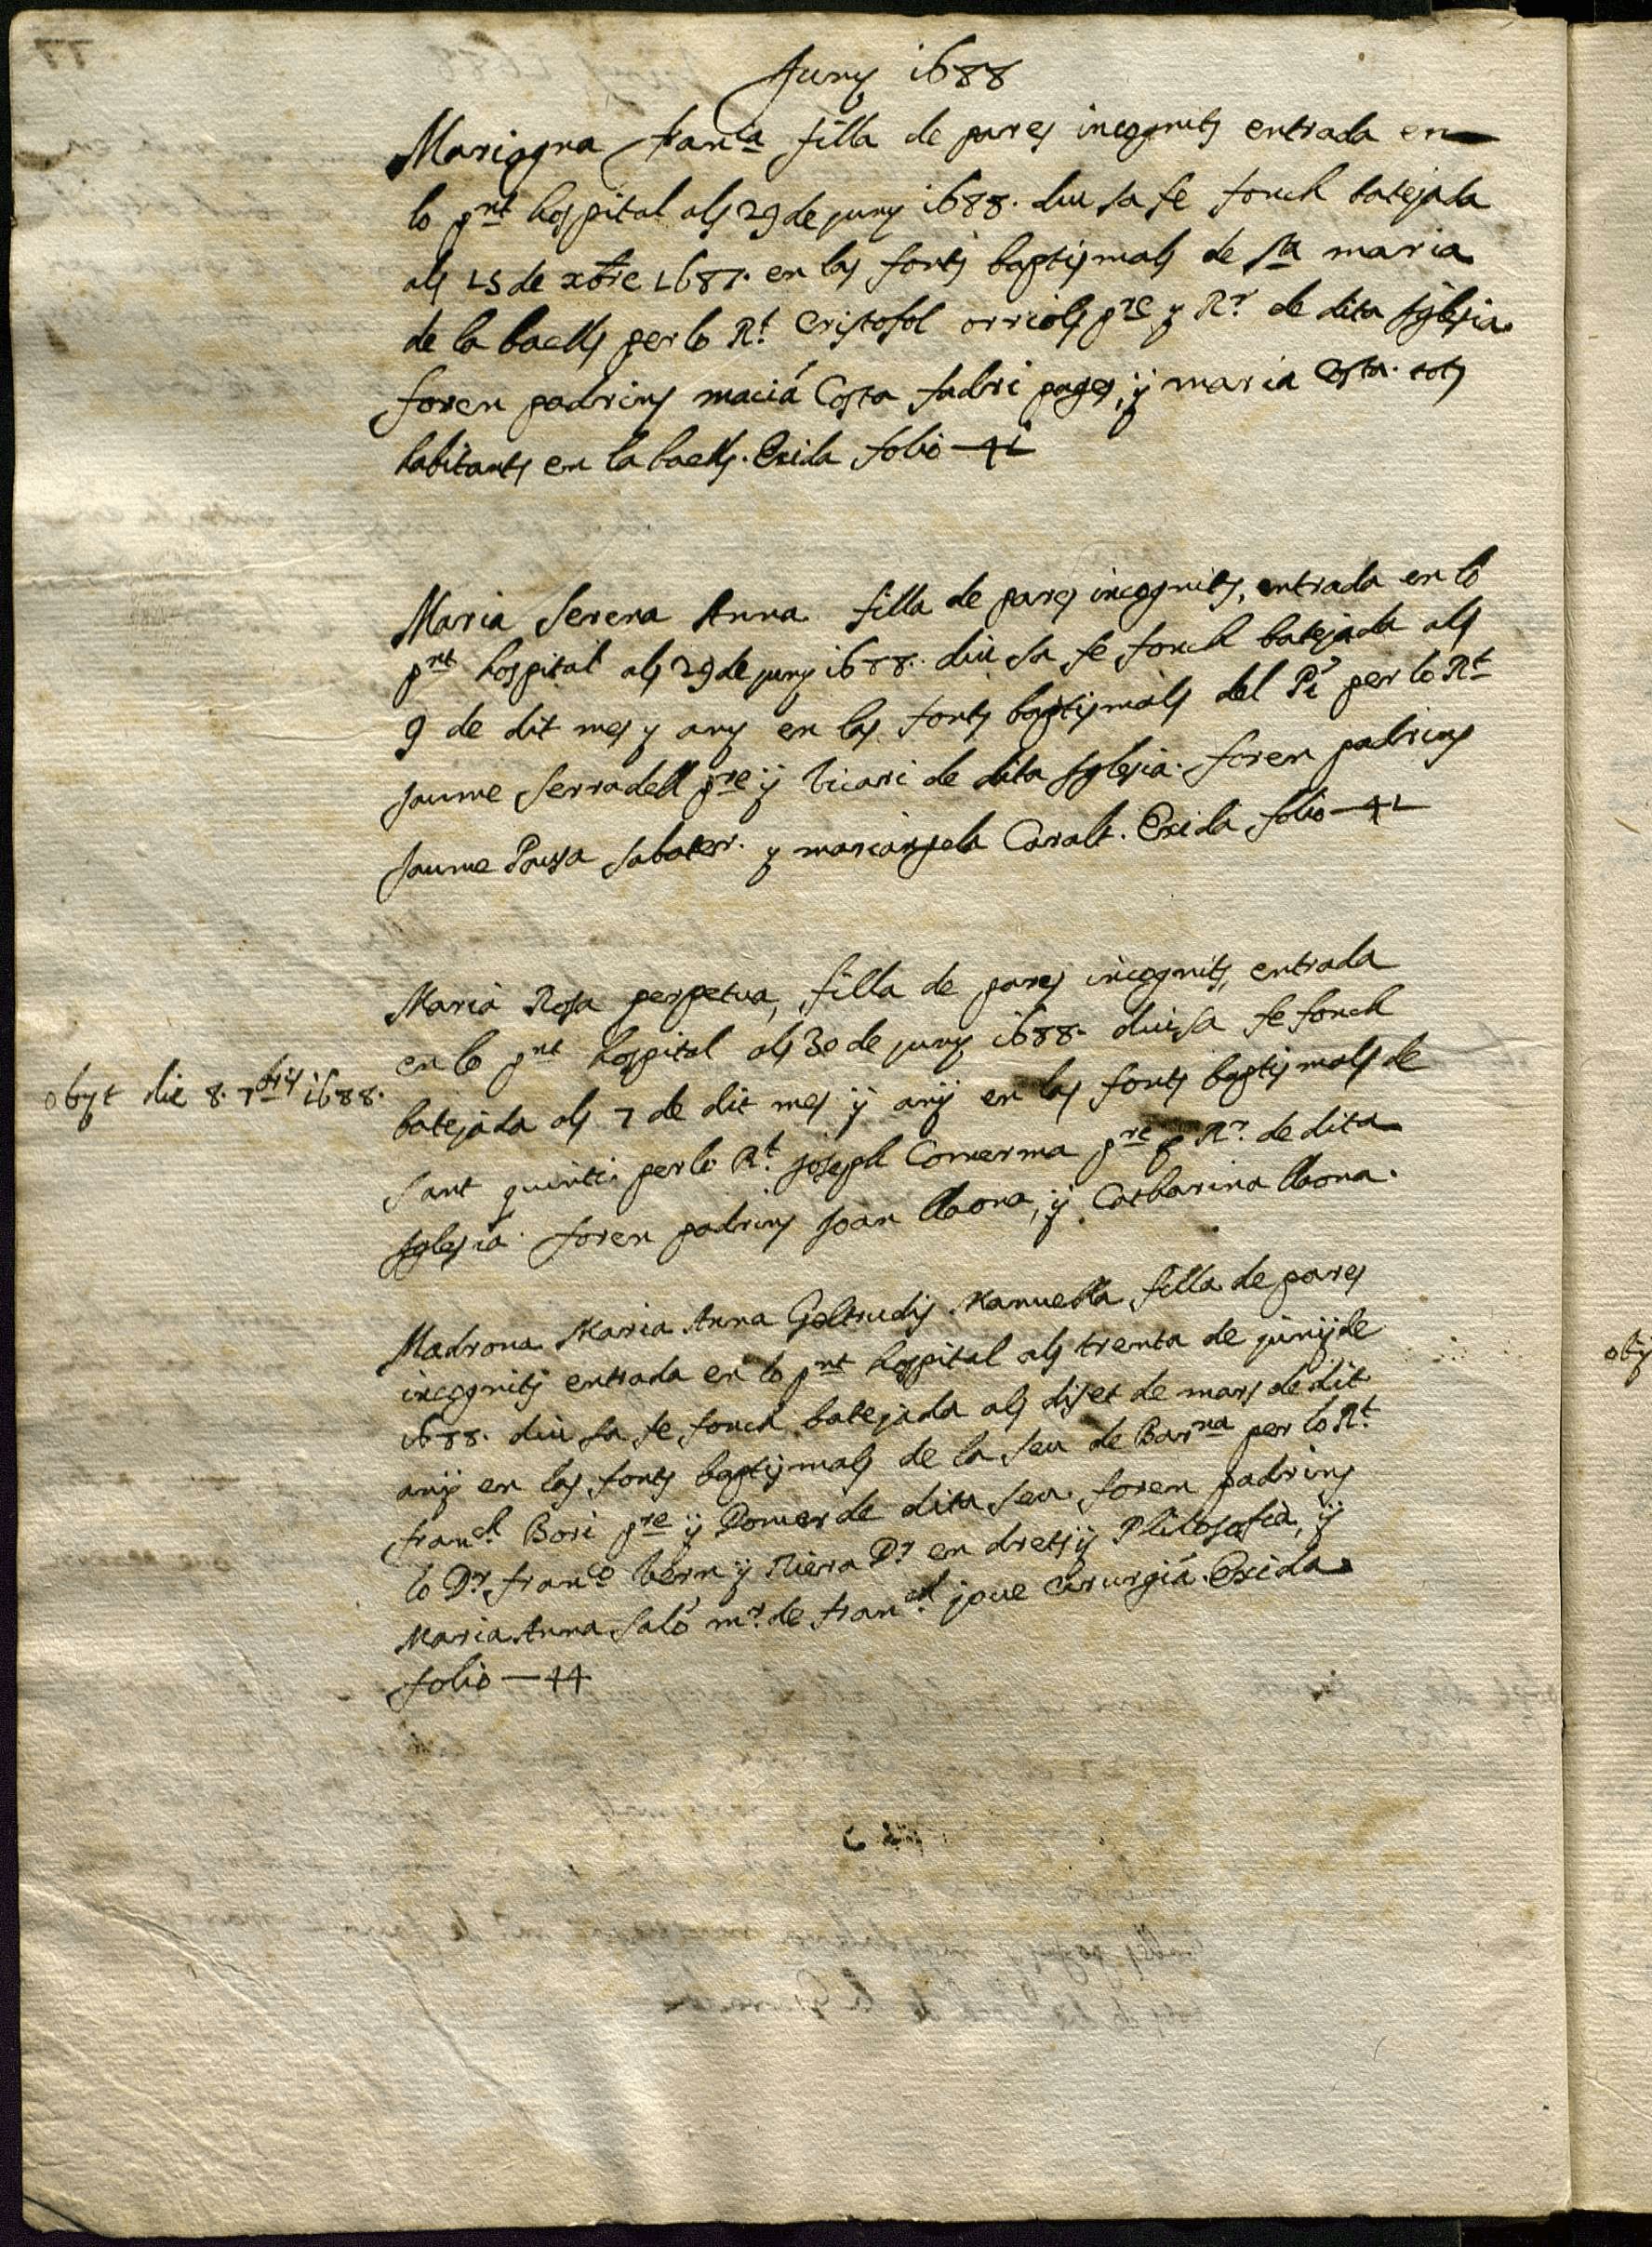 Juny 1688
Mariagna Franca filla de pares incognits entrada en
lo pnt hospital als 29 de juny 1688. diu sa fe fonch batejada
als 15 de xbre 1687. en las fonts baptismals de Sta maria
de la baells per lo Rt. Cristofol orriols pre y Rr de dita Iglesia.
foren padrins maciá Costa fadri pages, ÿ maria Costa. tots
habitants en la baells. Exida folio — 41
Maria Serena Anna filla de pares incognits, entrada en lo
pnt hospital als 29 de juny 1688. diu sa fe fonch batejada als
9 de dit mes y any en las fonts baptismals del Pi per lo Rt
Jaume Serradell pre ÿ Vicari de dita Iglesia. foren padrins
Jaume Sabater. y mariangela Caralt. Exida folio — 41
Maria Rosa perpetua, filla de pares incognits, entrada
en lo pnt hospital als 30 de juny 1688. diu sa fe fonch
obyt die 8. 7bris 1688.
batejada als 7 de dit mes ÿ anÿ en las fonts baptismals de
Sant quinti per lo Rt. joseph Comerma pre y Rr. de dita
Iglesia. foren padrins Joan llaona, ÿ Catharina llaona.
Madrona Maria Anna Geltrudis Manuella filla de pares
incognits entrada en lo pnt hospital als trenta de junÿ de
1688. diu sa fe fonch batejada als diset de mars de dit
anÿ en las fonts baptismals de la Seu de Barna per lo Rt.
franch Bori pre ÿ Domer de dita Seu. foren padrins
lo Dr. franco Vern ÿ Riera Dr en drets ÿ Philosofia, ÿ
Maria Anna Saló mr. de franch jove Cirurgiá. Exida
folio — 44